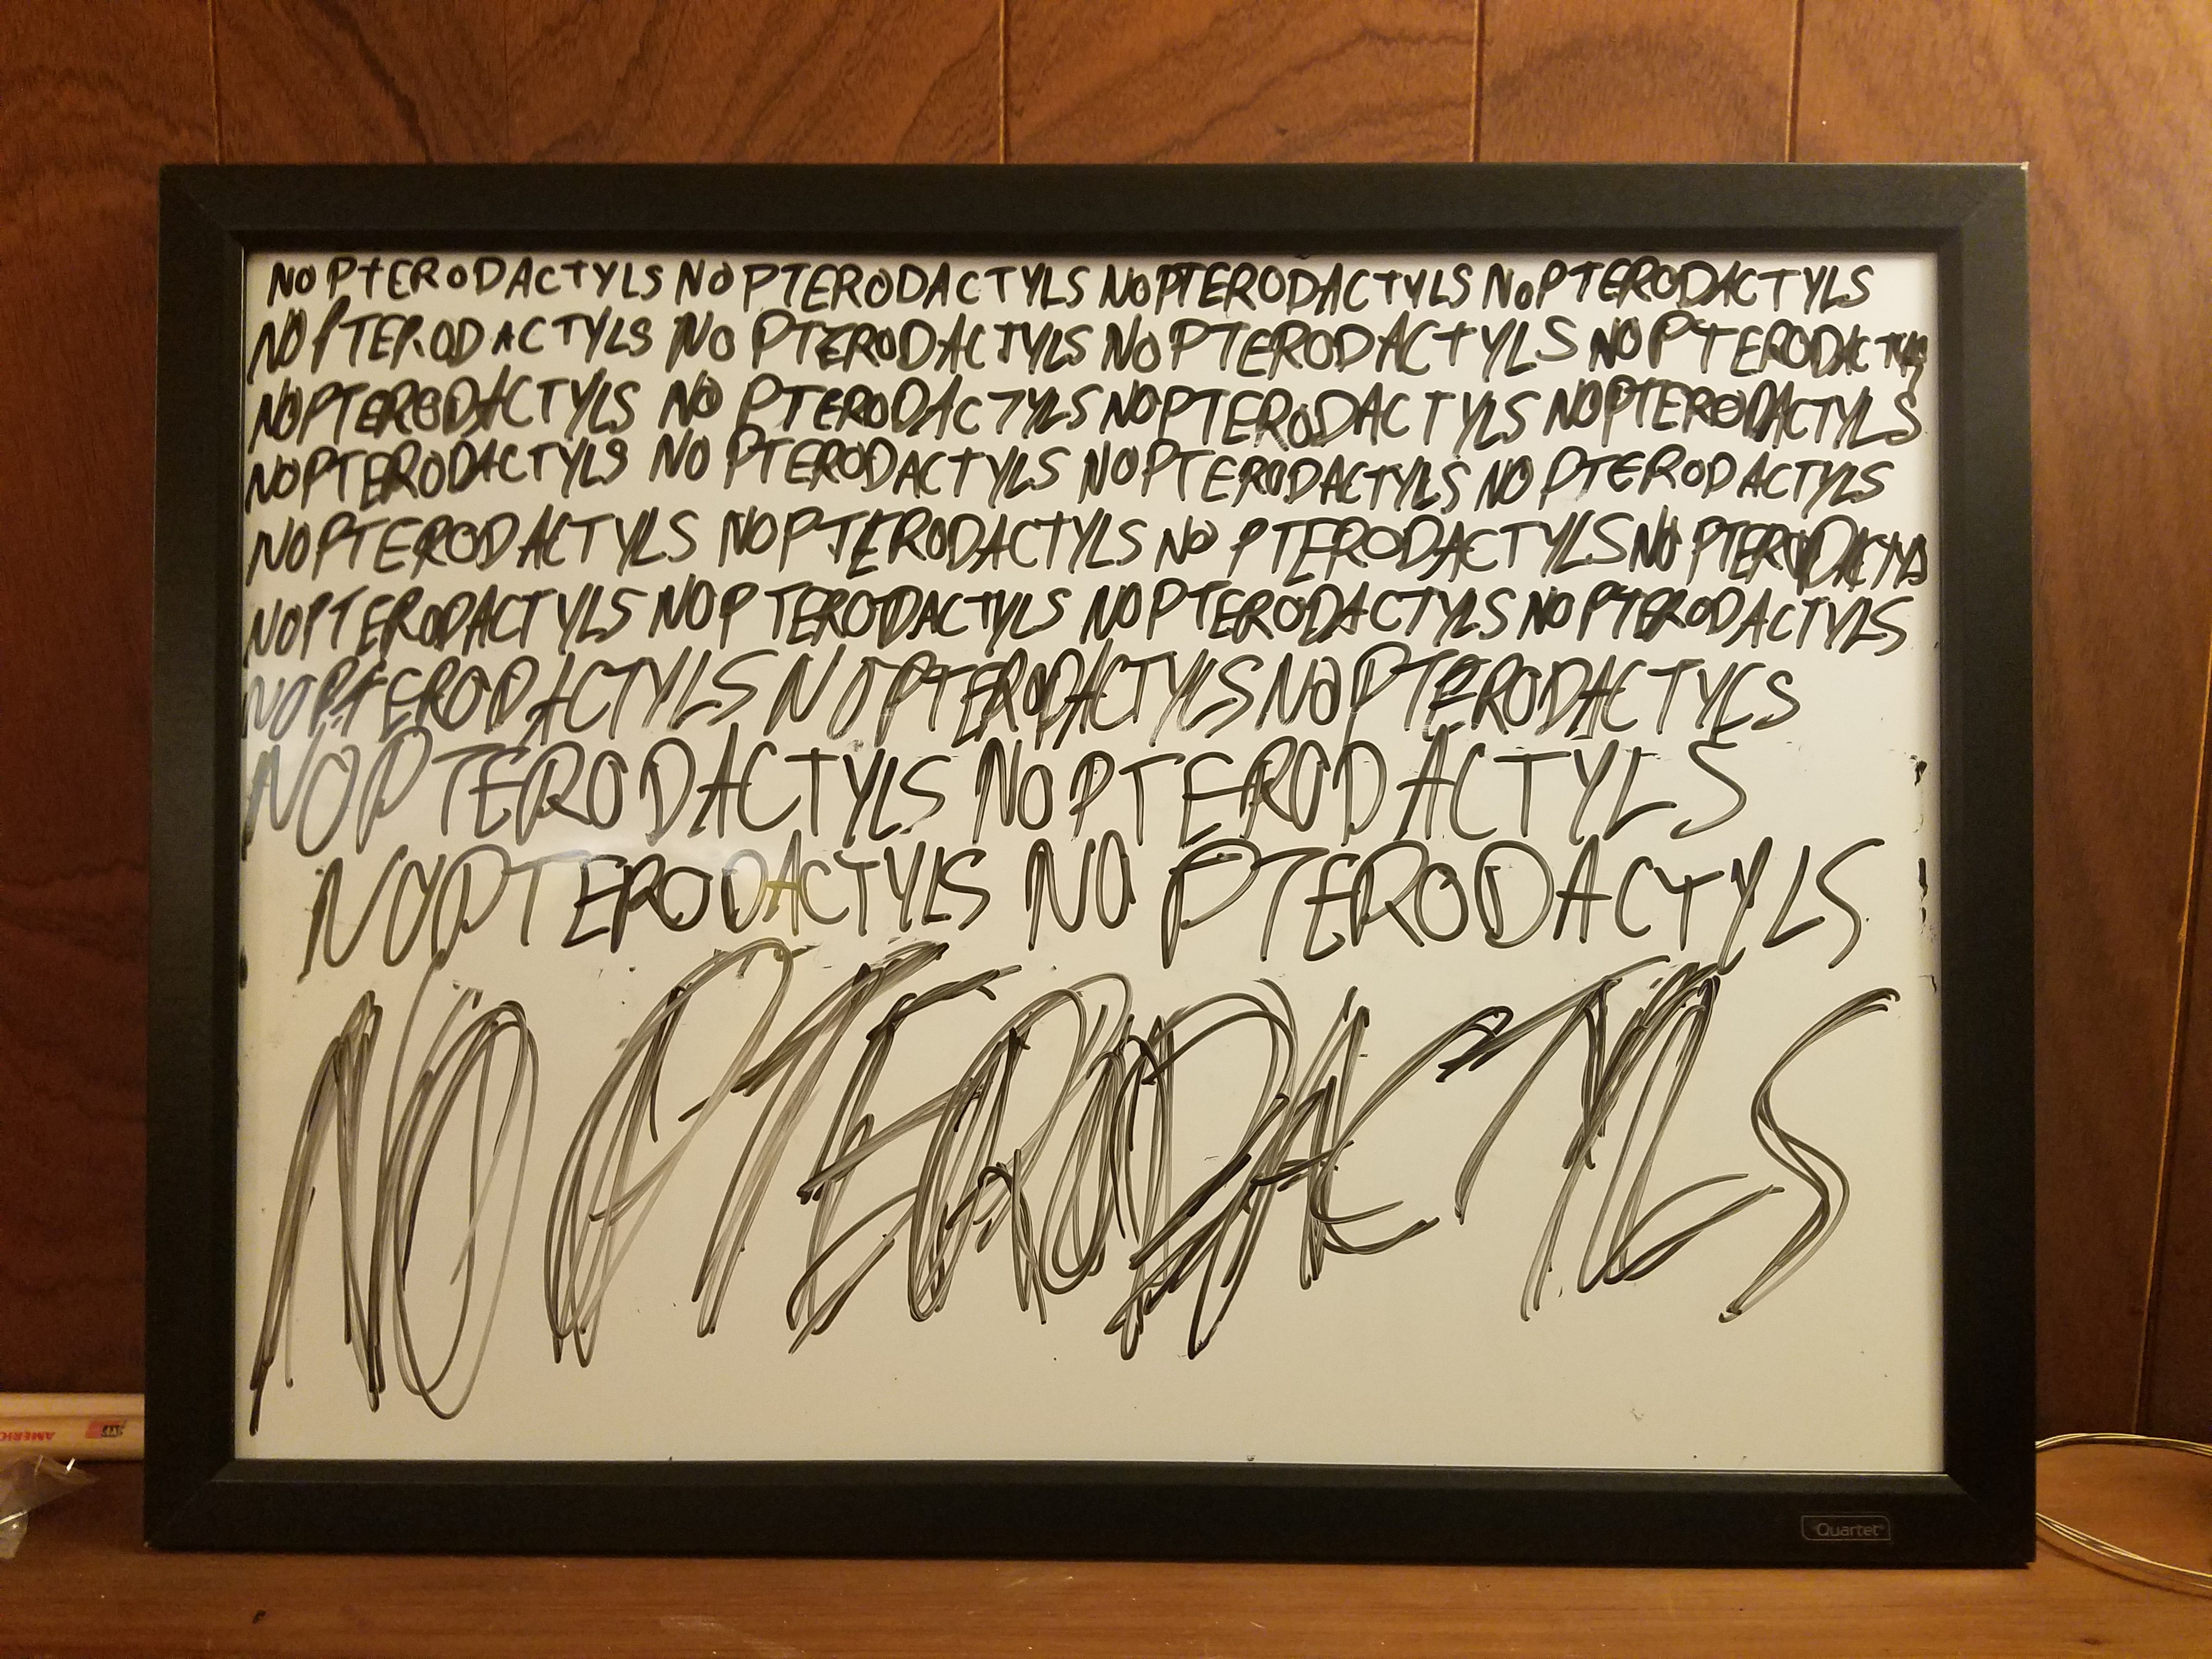 NO PTERODACTYLS NO PTERODACTYLS NO PTERODACTYLS NO PTERODACTYLS
NO PTERODACTYLS NO PTERODACTYLS NO PTERODACTYLS NO PTERODACTYLS
NO PTERODACTYLS NO PTERODACTYLS NO PTERODACTYLS NO PTERODACTYLS
NO PTERODACTYLS NO PTERODACTYLS NO PTERODACTYLS NO PTERODACTYLS
NO PTERODACTYLS NO PTERODACTYLS NO PTERODACTYLS NO PTERODACTYLS
NO PTERODACTYLS NO PTERODACTYLS NO PTERODACTYLS NO PTERODACTYLS
NO PTERODACTYLS NO PTERODACTYLS NO PTERODACTYLS
NO PTERODACTYLS NO PTERODACTYLS
NO PTERODACTYLS NO PTERODACTYLS
NO PTERODACTYLS
Quartet